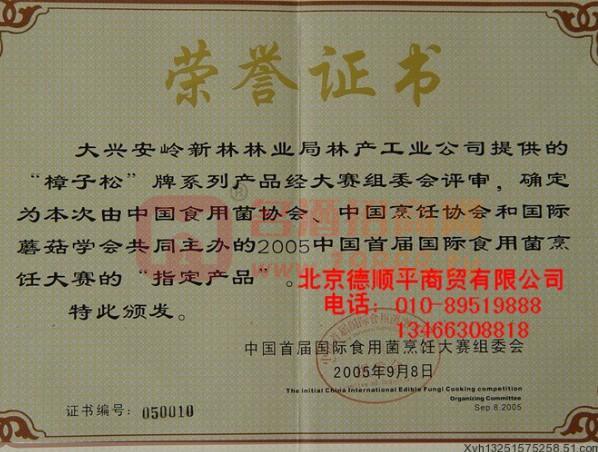 荣誉证书
大兴安岭新林林业局林产工业公司提供的
“樟子松”牌系列产品经大赛组委会评审，确定
为本次由中国食用菌协会、中国烹饪协会和国际
蘑菇学会共同主办的2005中国首届国际食用菌烹
饪大赛的“指定产品”。
北京德顺平商贸有限公司
电话：010-89519888
13466308818
特此颁发。
中国首届国际食用菌烹饪大赛组委会
2005年9月8日
The Initial China International Edible Fungi Cooking competition
Organizing Committee
Sep.8.2005
证书编号：050010
Xyh13251575258.51.com